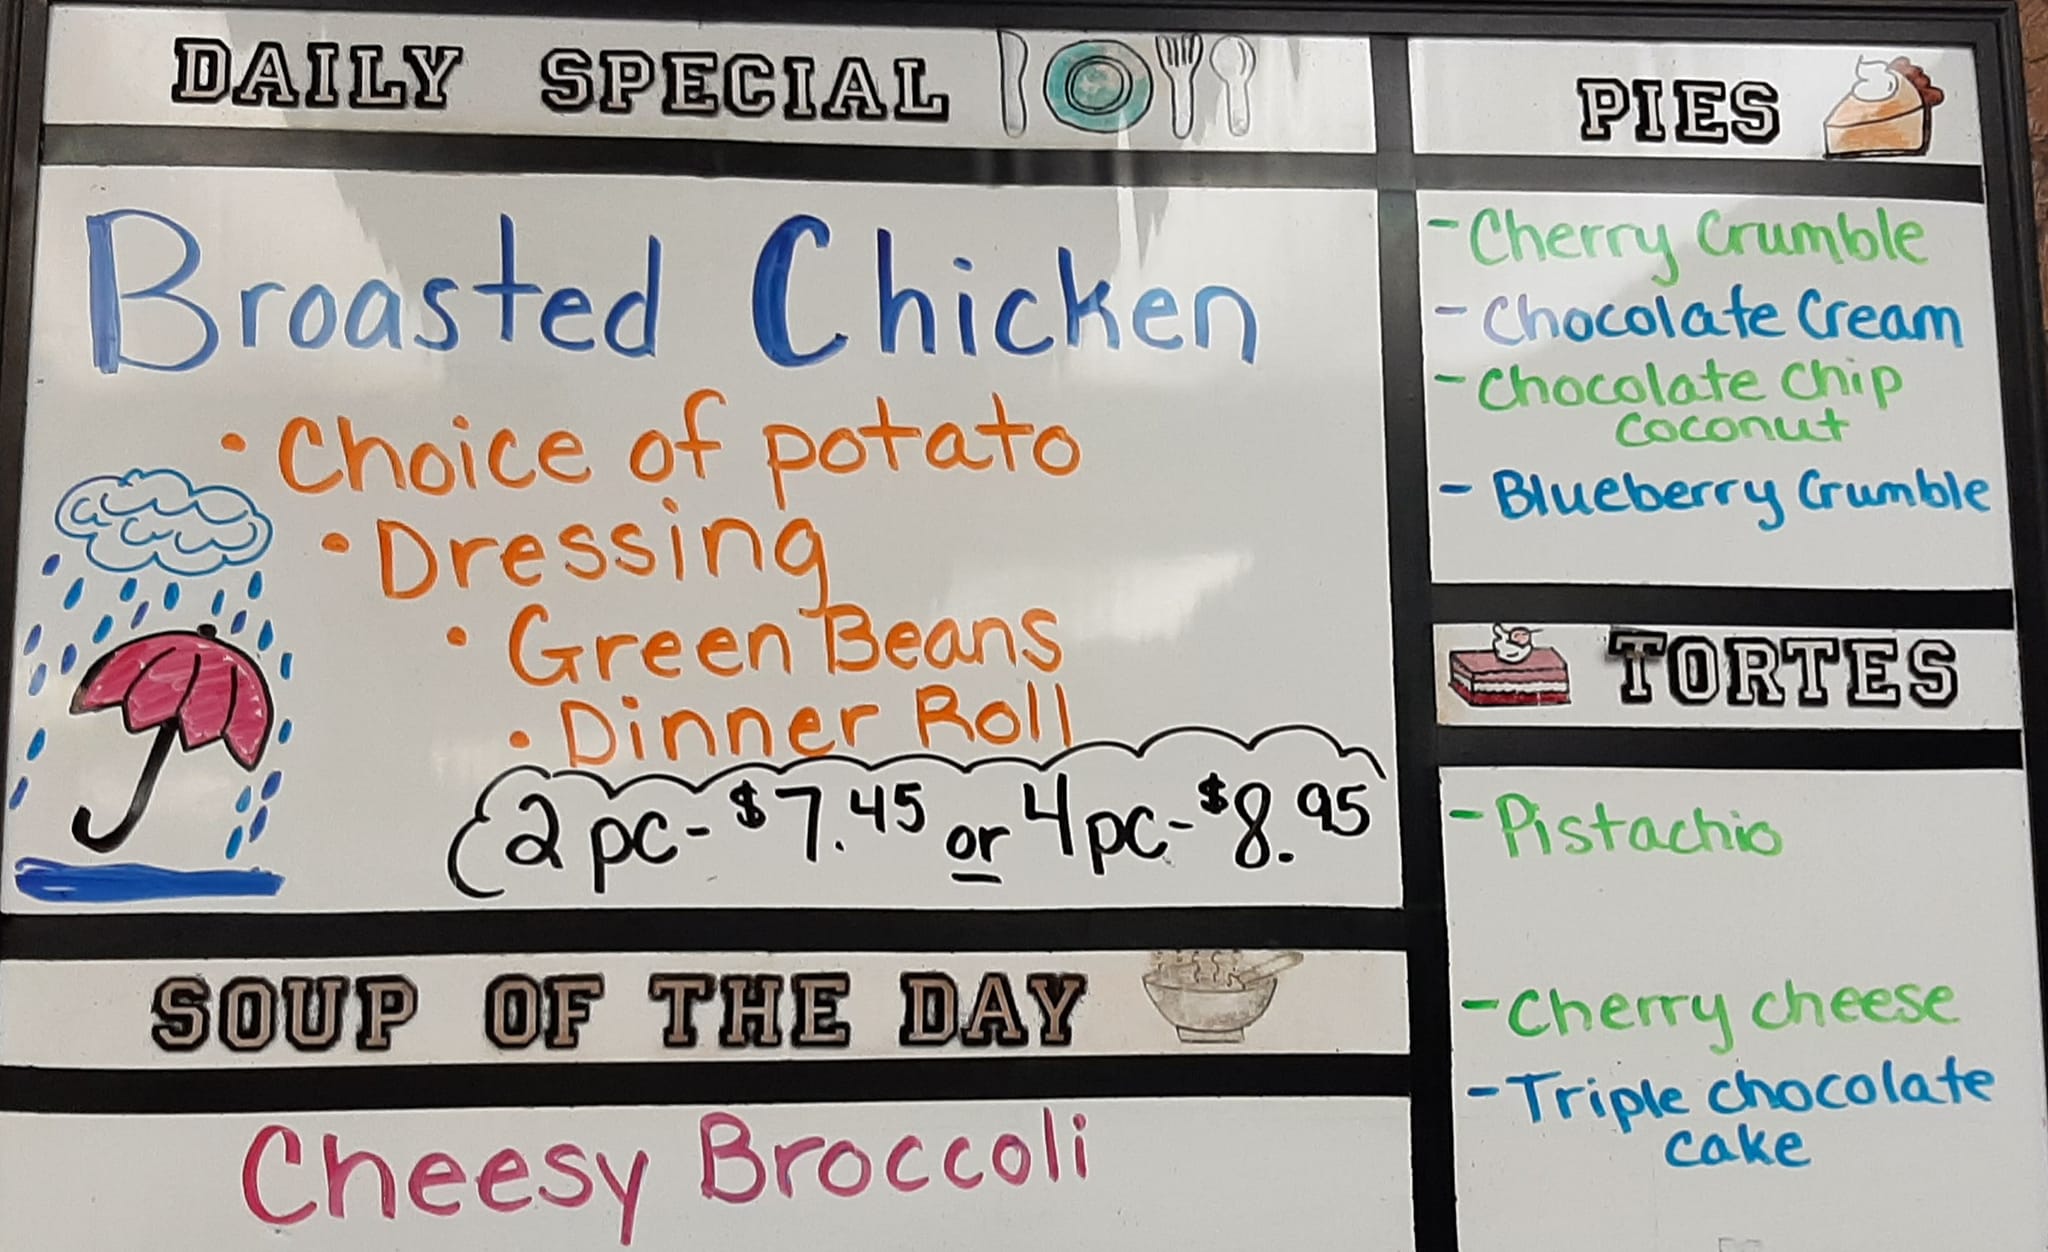 DAILY SPECIAL
Broasted Chicken
• Choice of potato
• Dressing
• Green Beans
• Dinner Roll
2 pc- $7.45 or 4 pc- $8.95
SOUP OF THE DAY
Cheesy Broccoli
PIES
- Cherry Crumble
- Chocolate Cream
- Chocolate Chip
Coconut
- Blueberry Crumble
TORTES
- Pistachio
- Cherry cheese
- Triple chocolate
cake